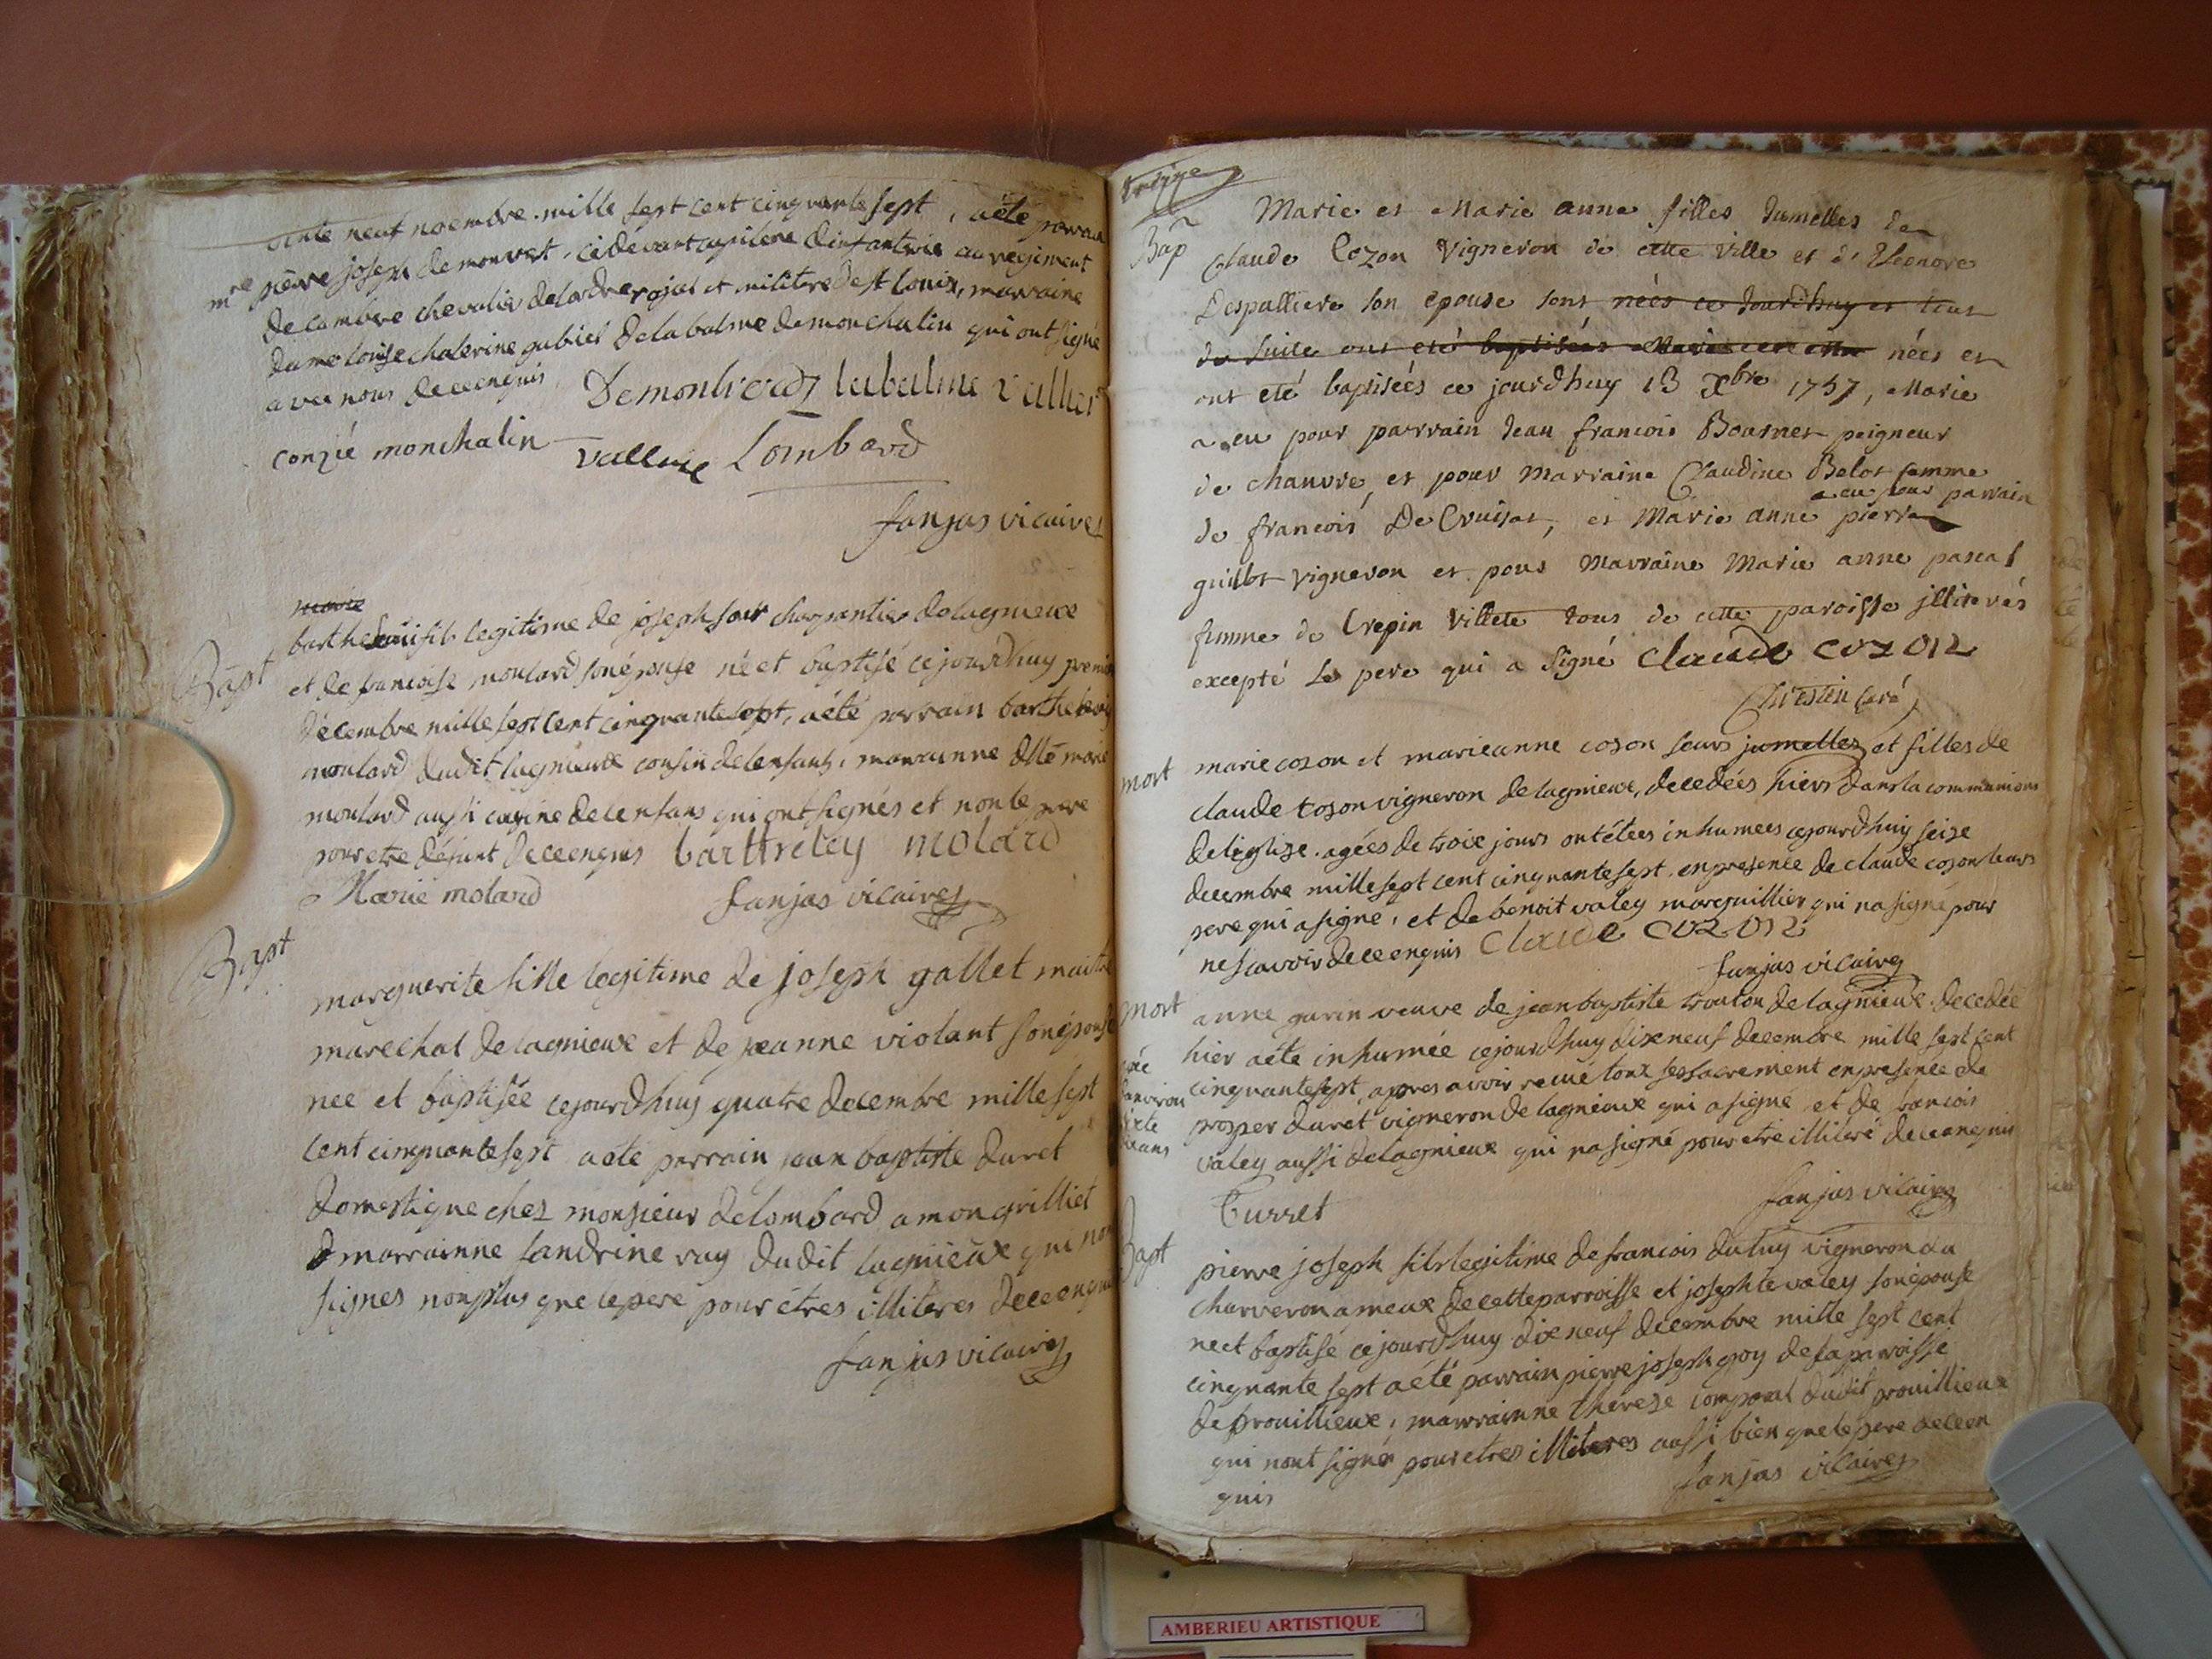 vinte neuf novembre mille sept cent cinquante sept, aété parrain
mre pierre joseph de monvert, cidevant capitene dinfanterie au regiment
de cambise chevalier delordre rojal et militere de st louis, marraine
dame louise chaterine gabiel delabalme de monchalin qui ont signé
avec nous deceenquis Demontverd labalme vallier
conzié monchalin vallier Lombard
fanjas vicaire
marie
Bapt
barthelemi fils legitime de joseph charpentier delagnieux
et de francoise moulard sonépouse né et baptisé cejourdhuy premier
décembre mille sept cent cinquante sept, aété parrain barthelemi
moulard dudit lagnieux cousin delenfant, marrainne dlle marie
moulard aussi cusine delenfans qui ont signés et non le pere
pour etre défunt deceenquis barthelemy molard
Marie molard fanjas vicaire
Bapt
marguerite fille legitime de joseph gallet maitre
marechal delagnieux et de jeanne violant sonépouse
nee et baptisée cejourdhuy quatre decembre mille sept
cent cinquante sept aété parrain jean baptiste duret
domestique chez monsieur delombard a mongrilliet
& marrainne sandrine ruy dudit lagnieux qui non
signes nonplus que le pere pour étres illiteres deceenquis
fanjas vicaire
Bap
Marie et Marie anne filles Jumelles de
Claude Cozon Vigneron de cette ville et d'Eleonore
Despalliere son epouse sont nées ce Jourdhuy et tout
de suite ont eté baptisées Marie nées et
ont eté baptisées ce jourdhuy 13 Xbre 1757, Marie
a eu pour parrain Jean francois Bournet peigneur
de chanvre, et pour Marraine Claudine Belot femme
a eu pour parrain
de francois De Cruisat, et Marie anne pierre
guillot vigneron et pour Marraine Marie anne pascal
femme de Crepin Villete tous de cette paroisse jlliterés
excepté Le pere qui a signé Claude cozon
Chrestin curé
mort
marie cozon et marieanne cozon seurs jumelles et filles de
claude cozon vigneron de lagnieux, decedées hiers dans la communions
deleglise. agées de trois jours ont étees inhumees cejourdhuy seise
decembre mille sept cent cinquante sept, enpresence de claude cozon leurs
pere qui a signé, et de benoit valey marguillier qui na signé pour
ne scavoir deceenquis Claude cozon
fanjas vicaire
mort
anne gurin veuve de jean baptiste troulon de lagnieux. decedée
hier aéte inhumée cejourdhuy dixneuf decembre mille sept cent
cinquantesept, apres avoir recue toux ses sacrement enpresence de
prosper duret vigneron de lagnieux qui a signe et de
valey aussi delagnieux qui na signé pour etre illiteré deceenquis
Turret fanjas vicaire
Bapt
pierre joseph fils legitime de francois duluy vigneron du
charveron a meux de cette parroisse et josephte valey sonépouse
né et baptisé cejourdhuy dixneuf decembre mille sept cent
cinquante sept aété parrain pierre joseph goy de la parroisse
de prouillieux, marrainne therese comporal dudit prouillieux
qui nont signé pour etres illiteres aussi bien que le pere deceen
quis fanjas vicaire
AMBERIEU ARTISTIQUE